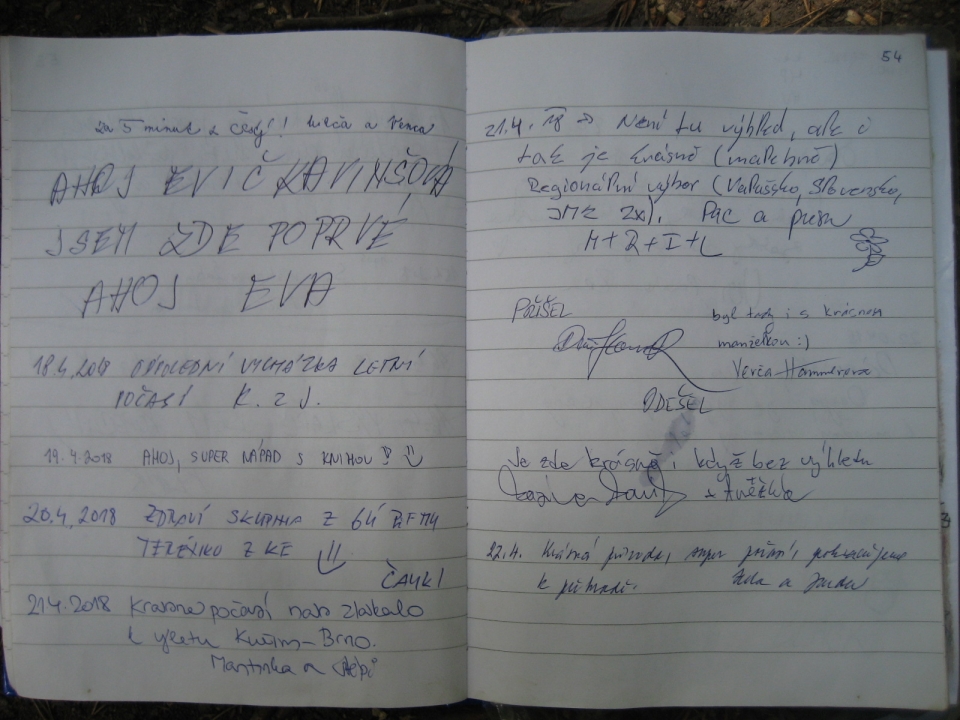 za 5 minut a česky! a Venca
AHOJ EVIČKA VINŠOVÁ
JSEM ZDE POPRVÉ
AHOJ EVA
18.4.2018 ODPOLEDNÍ VYCHÁZKA LETNÍ
POČASÍ K. z J.
19.4.2018 AHOJ, SUPER NÁPAD S KNIHOU!
20.4.2018 ZDRAVÍ SKUPINA Z
Z KE
ČAUKI
21.4.2018 Krasne počasí nas zlakalo
k výletu Kuřim - Brno.
Martinka a
54
21.4. 18 → Není tu výhled, ale i
tak je krásně (malebně)
Regionální výbor (Valašsko, Slovensko,
JMK 2x). Pác a pusu
M+R+I+L
PŘIŠEL
byl tady i s krásnou
manželkou :)
Verča
ODEŠEL
Je zde krásně, i když bez výhledu
+ Anežka
22.4. Krásná příroda, super počasí, pokračujeme
k přehradě. a